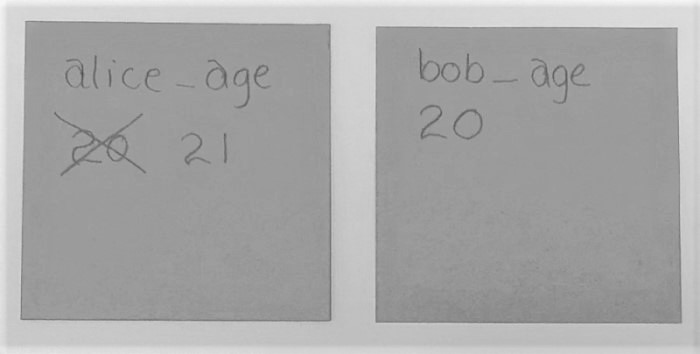 alice_age
20 21
bob_age
20